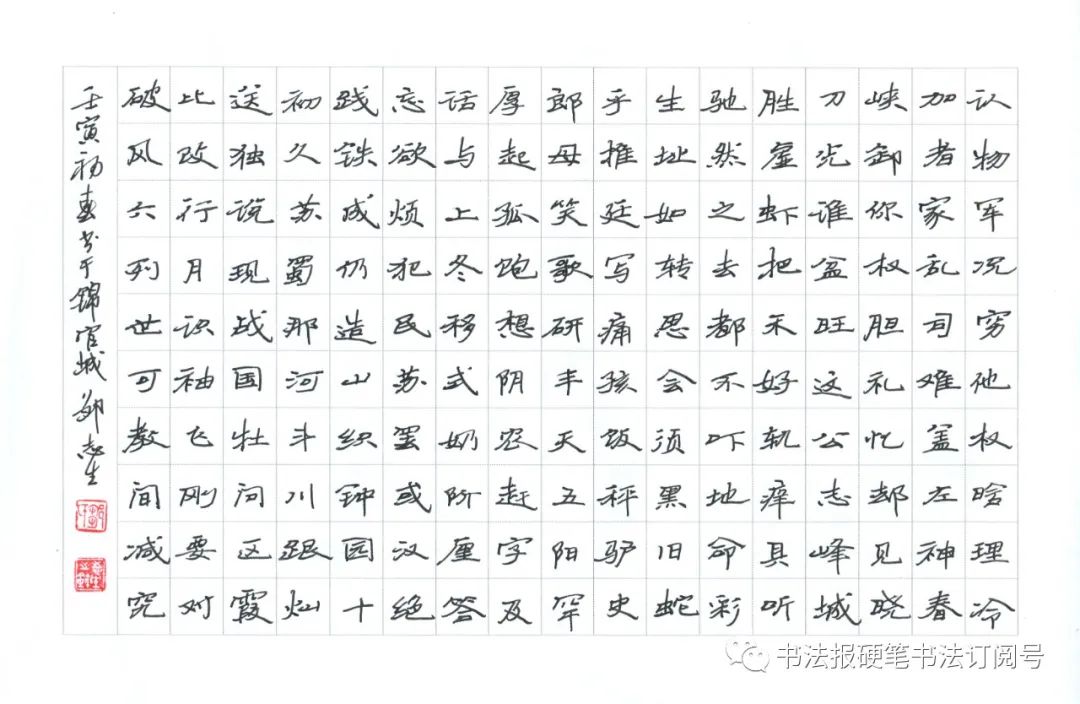 认物军况穷他权啥理冷
加者家乱司难盖左神春
峡卸你权胆礼忆却见晓
刀光谁盆旺这公志峰城
胜屋虾把禾好轨痒具听
驰然之去都不吓地命彩
生址如转思会须黑旧蛇
乎推廷写痛孩饭秤驴史
郎母笑歌研丰天五阳罕
厚起孤饱想阴容赶字及
话与上冬移式奶阶厘答
忘欲烦犯民苏罢或汉绝
践铁成仍造山织钟园十
初久苏蜀那河斗川跟灿
送独说现战国牡问区霞
比改行月识袖飞刚要对
破风六列世可教间减究
壬寅初春书于锦官城 邹志生
书法报硬笔书法订阅号